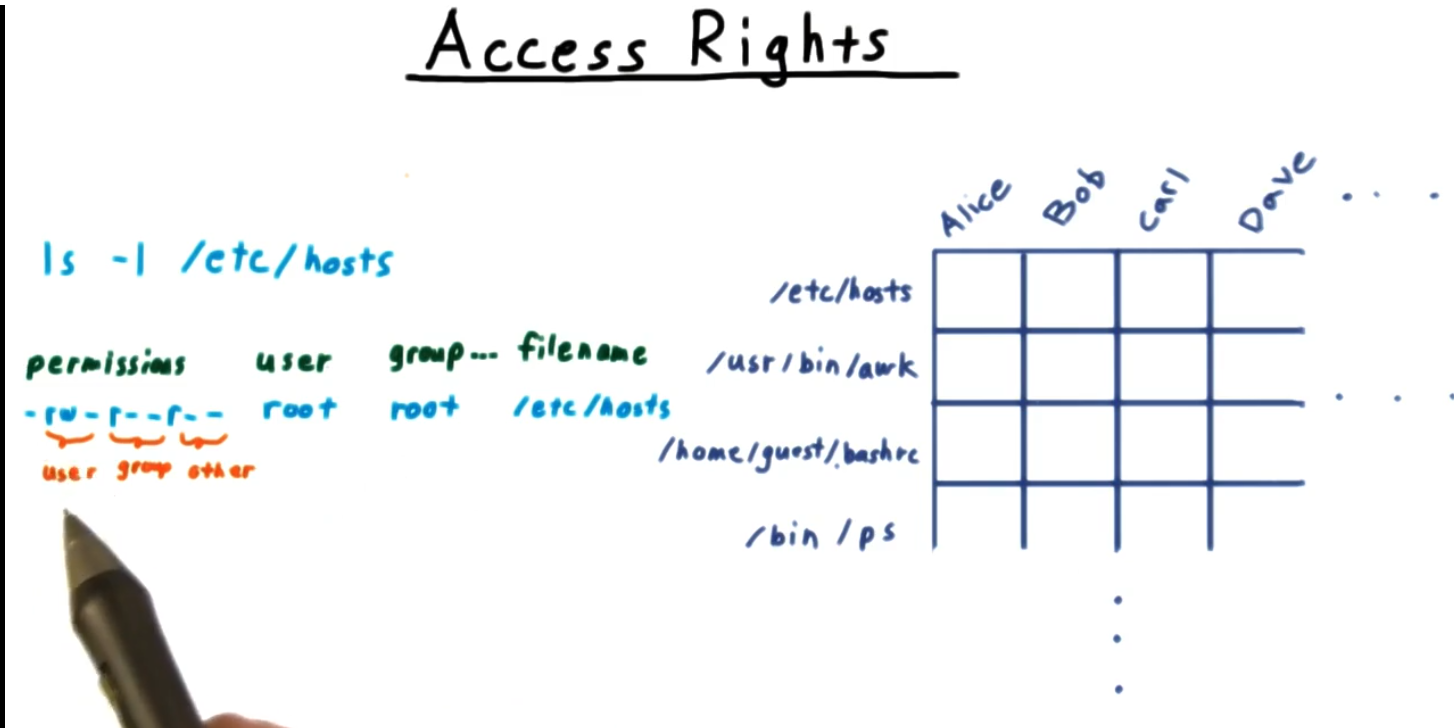 Access Rights
ls -l /etc/hosts
permissions user group... filename
-rw-r--r-- root root /etc/hosts
user group other
Alice Bob Carl Dave . . .
/etc/hosts
/usr/bin/awk
/home/guest/.bashrc
/bin/ps